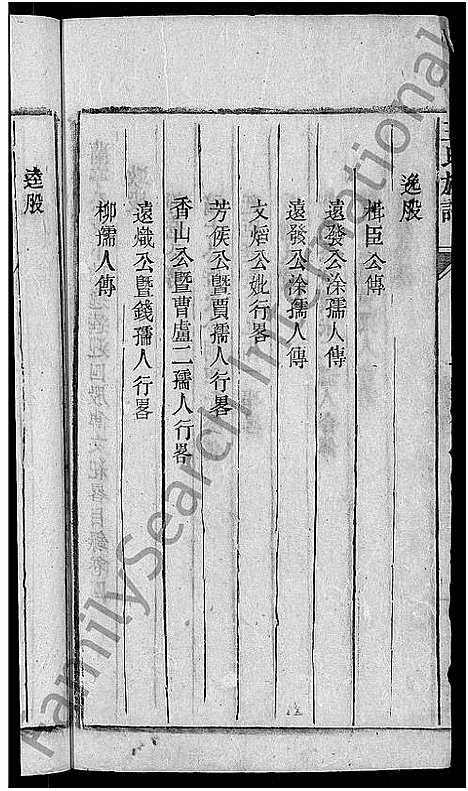 王氏族譜
逸股
楫臣公傳
遠發公涂孺人傳
遠發公涂孺人傳
文焰公妣行畧
芳侯公暨賈孺人行畧
香山公暨曹盧二孺人行畧
遠熾公暨錢孺人行畧
柳孺人傳
逵股
FamilySearch International